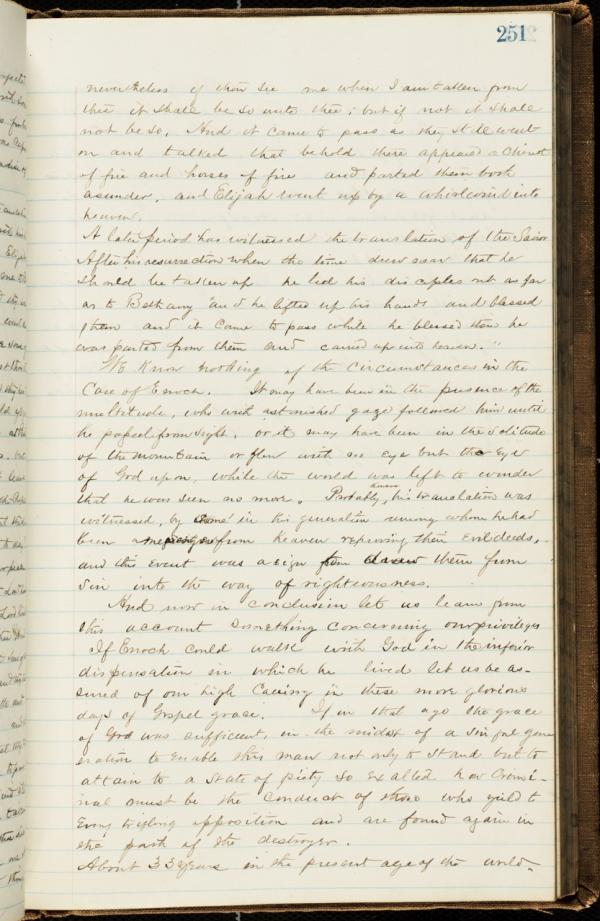 251
nevertheless if thou see me when I am taken from
thee it shall be so unto thee; but if not it shall
not be so. And it came to pass as they still went
on and talked that behold there appeared a Chariot
of fire and horses of fire and parted them both
asunder, and Elijah went up by a whirlwind into
heaven.
A later period has witnessed the translation of the Savior
After his resurrection when the time drew near that he
should be taken up he led his disciples out as far
as to Bethany "and he lifted up his hands and blessed
them and it came to pass while he blessed them he
was parted from them and carried up into heaven."
We know nothing of the circumstances in the
Case of Enoch. It may have been in the presence of the
multitude, who with astonished gaze followed him until
he passed from sight, or it may have been in the solitude
of the mountain or glen with no eye but the Eye
of God upon, while the world was left to wonder
that he was seen no more. Probably, his translation was
witnessed, by some in his generation among whom he had
been a messenger from heaven reproving their evil deeds,
and this event was a sign to them from
sin into the way of righteousness.
And now in conclusion let us learn from
this account something concerning our privileges
If Enoch could walk with God in the inferior
dispensation in which he lived let us be as-
sured of our high Calling in these more glorious
days of Gospel grace. If in that age the grace
of God was sufficient, in the midst of a sinful gen
eration to enable this man not only to stand but to
attain to a state of piety so exalted how Crimi-
nal must be the conduct of those who yield to
Every trifling opposition and are found again in
the path of the destroyer.
About 33 years in the present age of the world.